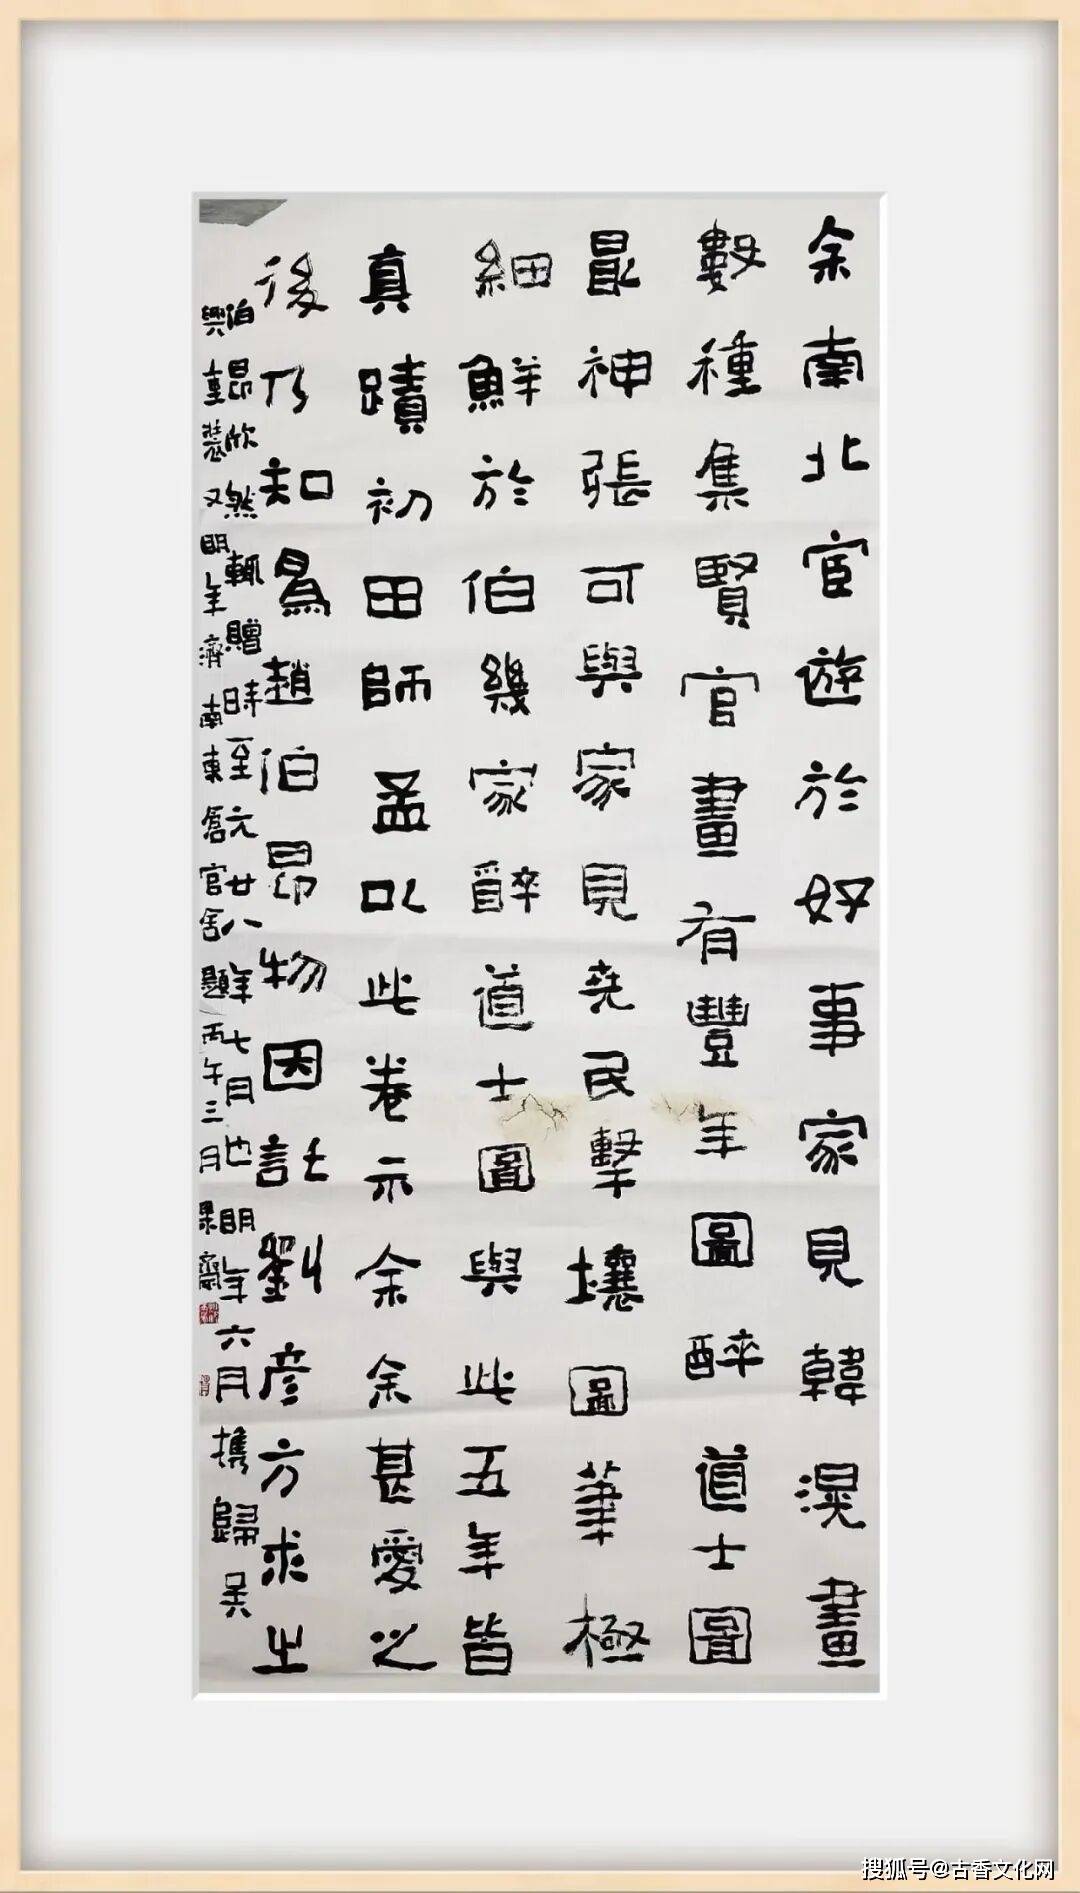 余南北宦遊於好事家見韓滉畫
數種集賢官畫有豐年圖醉道士圖
最神張可與家見堯民擊壤圖筆極
細鮮於伯幾家醉道士圖與此五年皆
真蹟初田師孟以此卷示余余甚愛之
後乃知為趙伯昂物因託劉彥方求之
伯昂欣然輒贈時至元廿八年七月也明年六月携歸吳
興重裝又明年濟南東倉官舍題丙午三月果齋
搜狐号@古香文化网